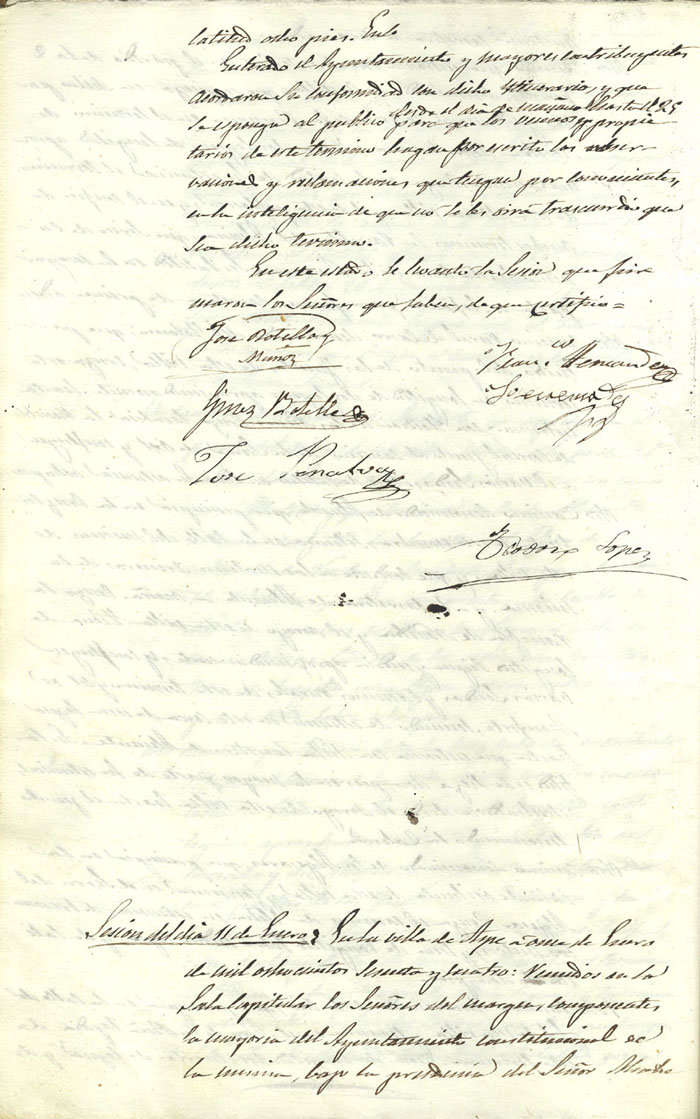 latitud ocho pies. Enla
Enterado el Ayuntamiento y mayores contribuyentes
acordaron su conformidad con dicho Ytinerario, y que
se esponga al publico desde el dia de mañana hasta el 25
para que los vecinos y propie
tarios de este termino hagan por escrito las obser-
vaciones y reclamaciones que tengan por convenientes,
en la inteligencia de que no se les oirá trascurrido que
sea dicho termino.
En este estado se levanto la Sesion que fir
maron los Señores que saben, de que certifico=
Jose Botella y
Muñoz
Fran.co Hernandez
Gines Botella
Jose Penalva
Teodoro Lopez
Sesion del dia 11 de Enero, En la villa de Aspe a once de Enero
de mil ochocientos sesenta y cuatro: Reunidos en la
Sala Capitular los Señores del margen, componentes
la mayoria del Ayuntamiento constitucional de
la misma, bajo la presidencia del Señor Alcalde